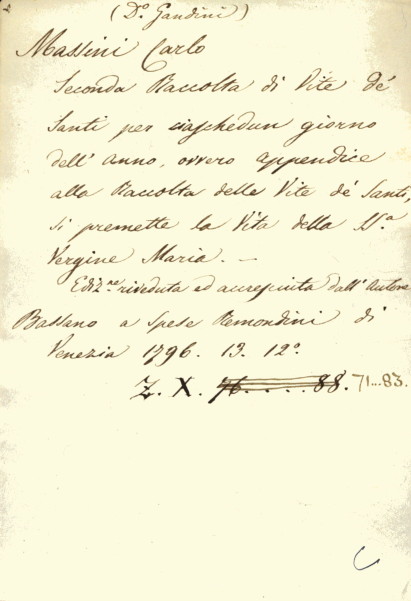 (Dº. Gandini)
Massini Carlo
Seconda Raccolta di Vite dé
Santi per ciaschedun giorno
dell' anno, ovvero appendice
alla Raccolta delle Vite dé Santi,
si premette la Vita della SS.ª
Vergine Maria. —
Ediz.ne riveduta ed accresciuta dall' Autore
Bassano a spese Remondini di
Venezia 1796. 13. 12º.
Z. X. 76....88. 71...83.